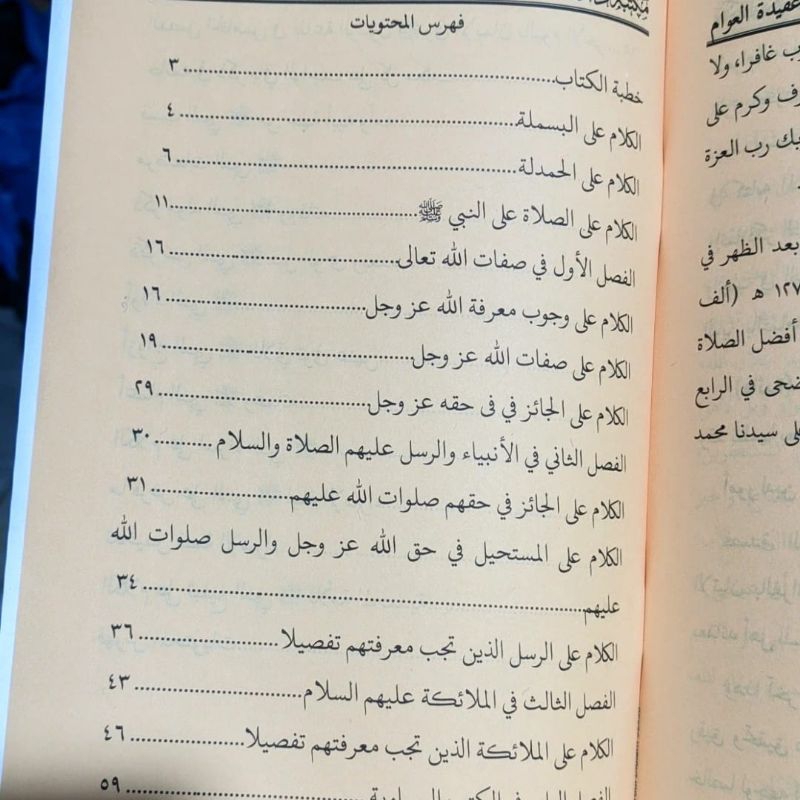 فهرس المحتويات
خطبة الكتاب ٣
الكلام على البسملة ٤
الكلام على الحمدلة ٦
الكلام على الصلاة على النبي ﷺ ١١
الفصل الأول في صفات الله تعالى ١٦
الكلام على وجوب معرفة الله عز وجل ١٦
الكلام على صفات الله عز وجل ١٩
الكلام على الجائز في فى حقه عز وجل ٢٩
الفصل الثاني في الأنبياء والرسل عليهم الصلاة والسلام ٣٠
الكلام على الجائز في حقهم صلوات الله عليهم ٣١
الكلام على المستحيل في حق الله عز وجل والرسل صلوات الله
عليهم ٣٤
الكلام على الرسل الذين تجب معرفتهم تفصيلا ٣٦
الفصل الثالث في الملائكة عليهم السلام ٤٣
الكلام على الملائكة الذين تجب معرفتهم تفصيلا ٤٦
٥٩
عقيدة العوام
غافرا، ولا
وكرم على
رب العزة
بعد الظهر في
هـ (ألف
أفضل الصلاة
في الرابع
سيدنا محمد